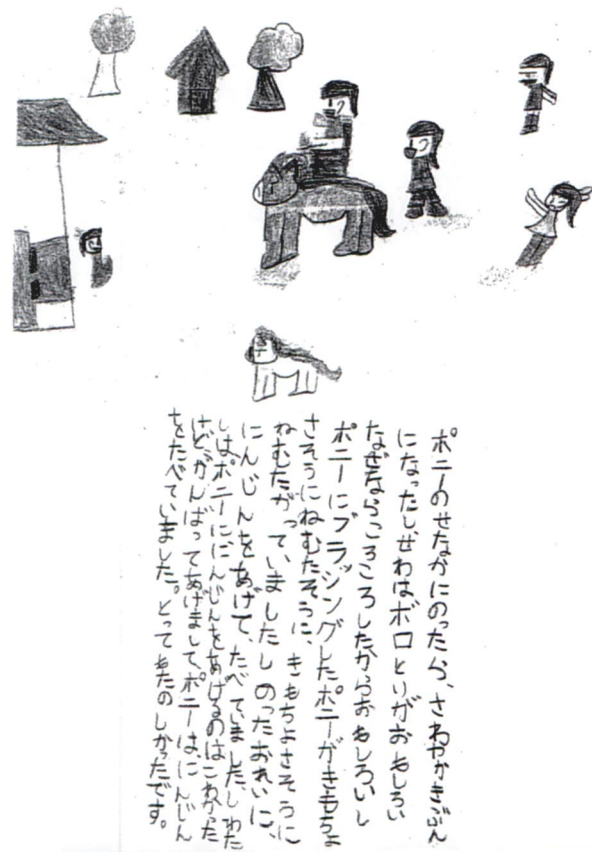 ポニーのせなかにのったら、さわやかきぶん
になったし、せわはボロとりがおもしろい
なぜならころころしたからおもしろいし
ポニーにブラッシングしたポニーがきもちよ
さそうにねむたそうに、きもちよさそうに
ねむたがっていましたしのったおれいに、
にんじんをあげて、たべていました、しわた
しはポニーににんじんをあげるのはこわかった
けどがんばってあげまして、ポニーは、にんじん
をたべていました。とってもたのしかったです。